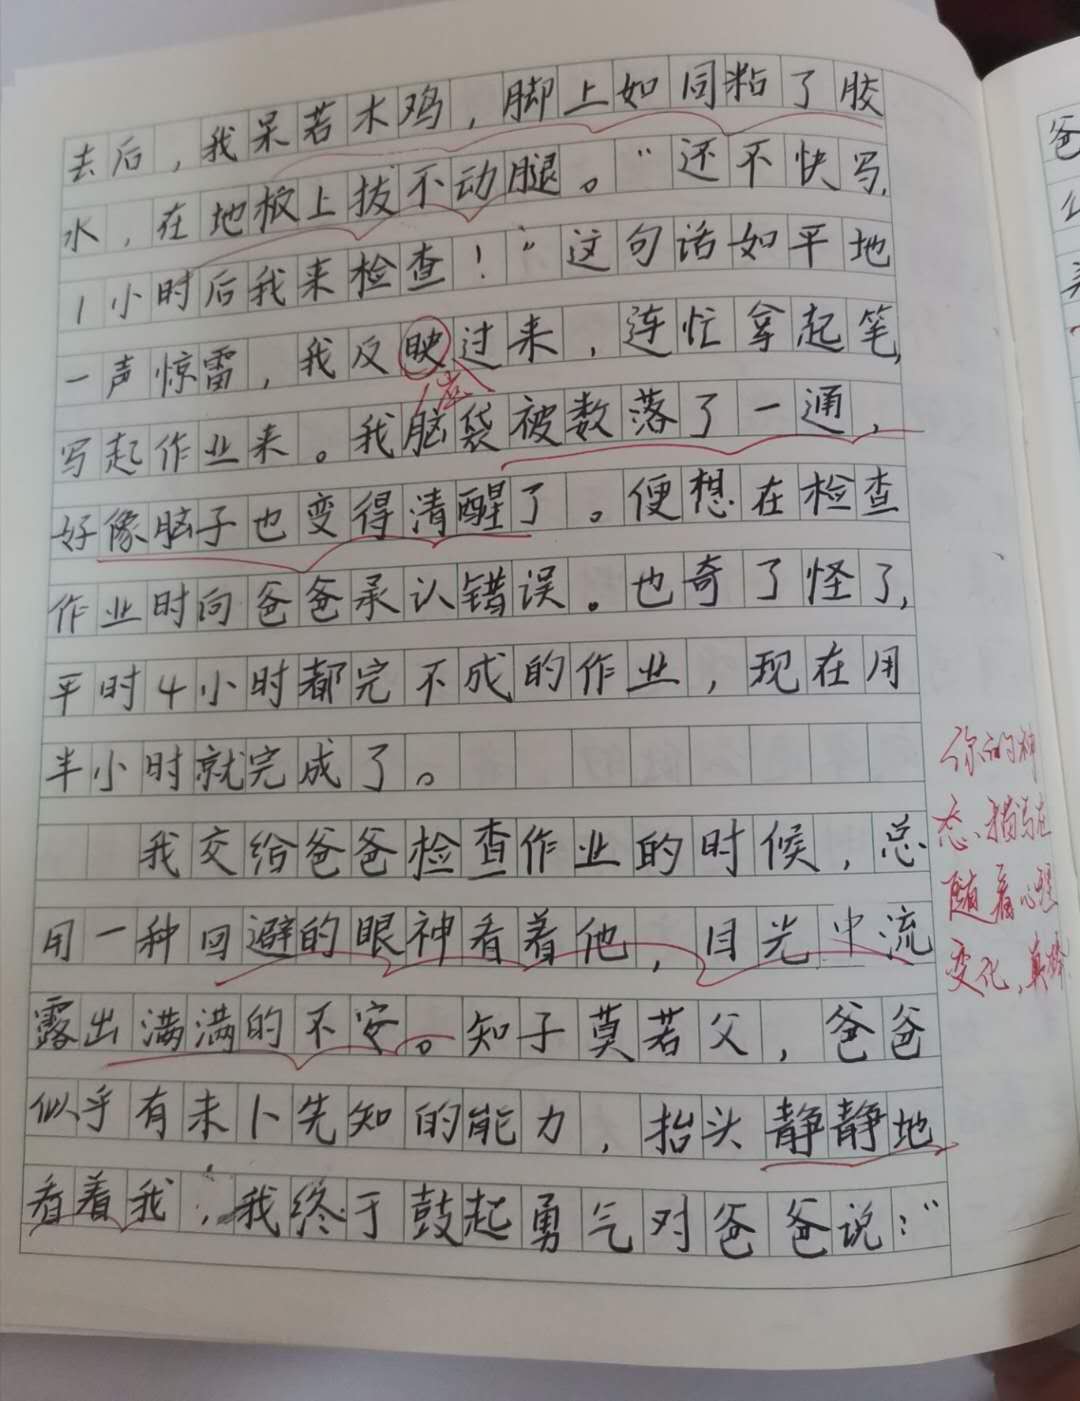 去后，我呆若木鸡，脚上如同粘了胶
水，在地板上拔不动腿。“还不快写，
1小时后我来检查！”这句话如平地
一声惊雷，我反映过来，连忙拿起笔，
应
写起作业来。我脑袋被数落了一通，
好像脑子也变得清醒了。便想在检查
作业时向爸爸承认错误。也奇了怪了，
平时4小时都完不成的作业，现在用
半小时就完成了。
我交给爸爸检查作业的时候，总
用一种回避的眼神看着他，目光中流
露出满满的不安。知子莫若父，爸爸
似乎有未卜先知的能力，抬头静静地
看着我，我终于鼓起勇气对爸爸说：“
你的神
态、描写在
随着心理
变化，真
爸